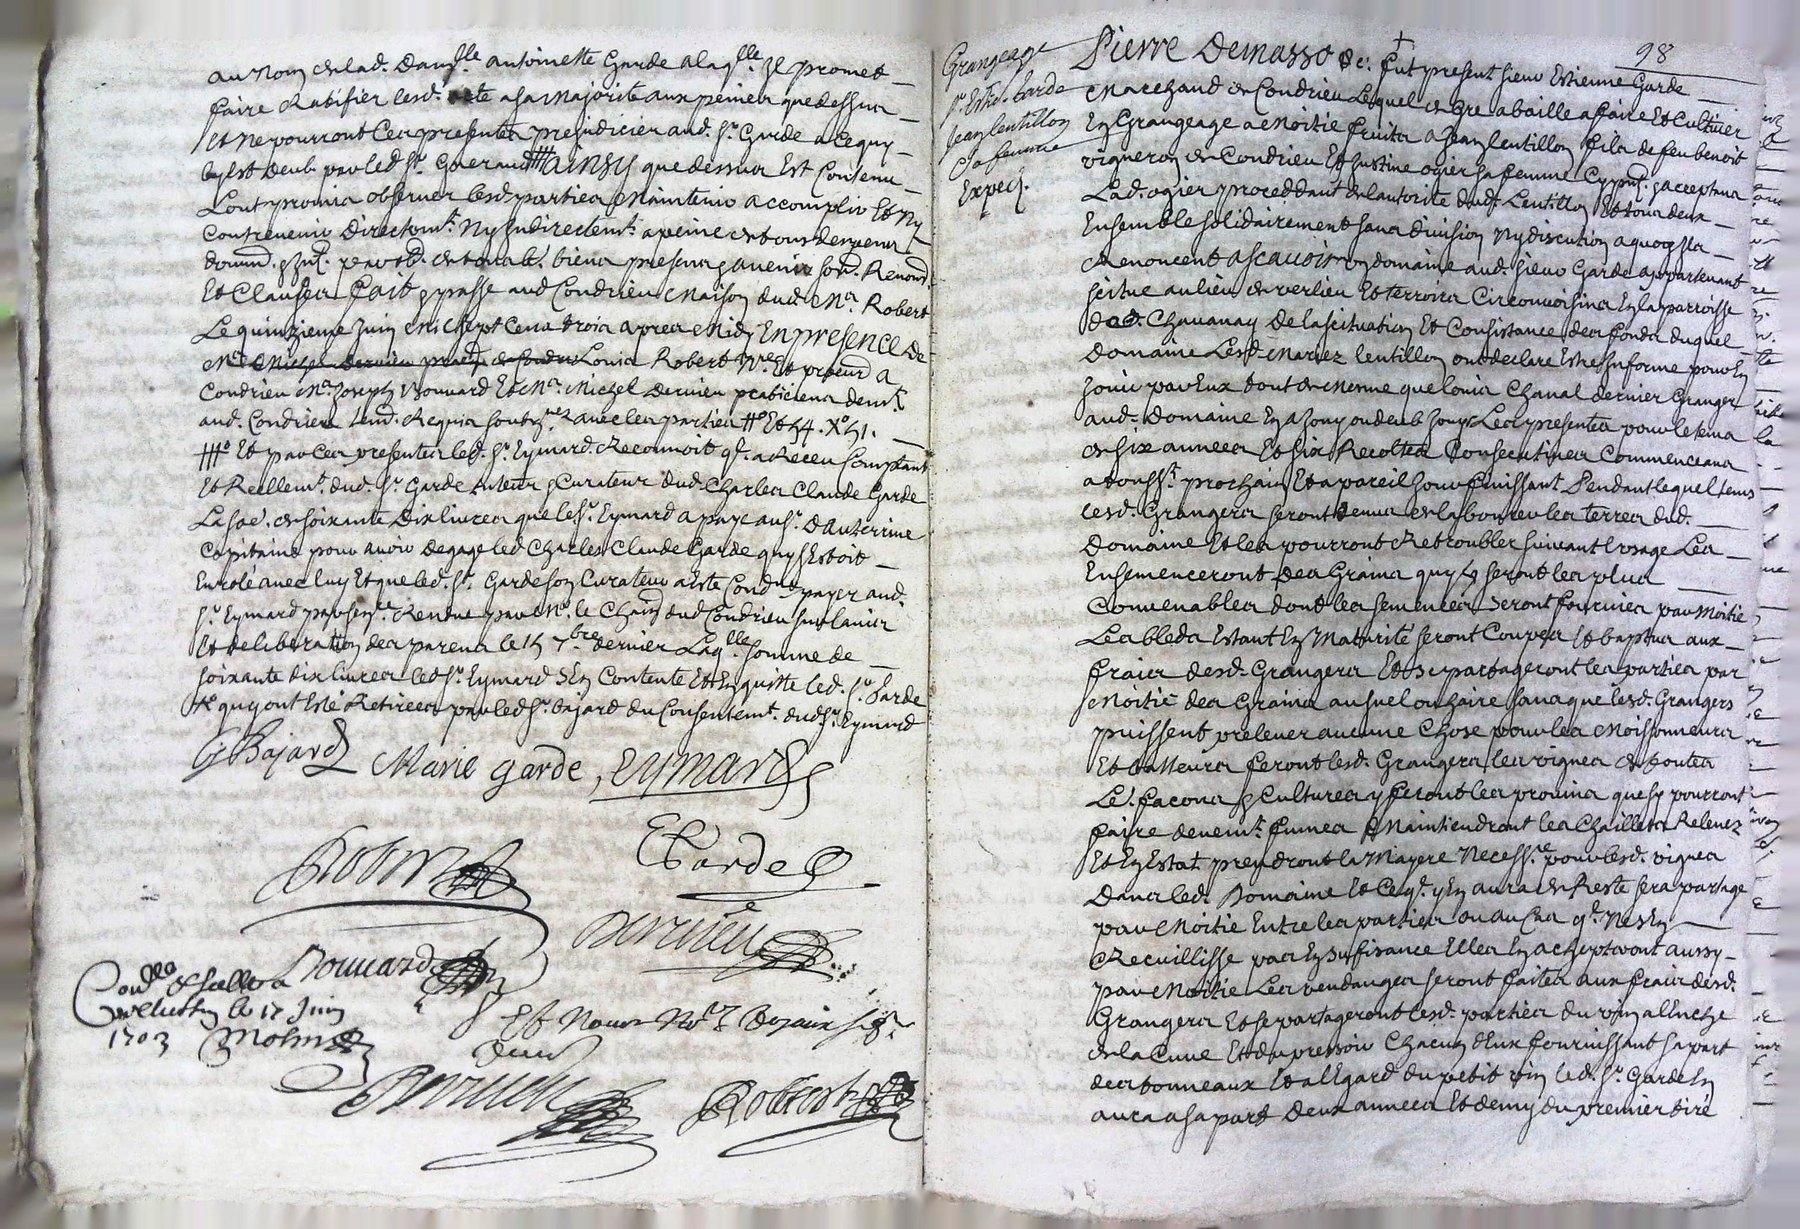 au Nom de lad. Dam.lle antoinette Garde a laq.lle Jl promet
faire Ratifier lesd. acte a sa Majorite aux peines que dessus
Et Ne pourront Ces presentes prejudicier aud. Sr. Garde a Ce quy
luy Est deub par led Sr. Guerau ainsy que dessus Est Convenu
Lont promis observer lesd parties Maintenir accomplir Et Ny
Contrevenir Directem.t Ny Indirectem.t a peine de tous despens
domm. Int. de tous biens presens avenir Renond.
Et Clauses fait passe aud Condrieu Maison dud Me. Robert
Le quinzieme Juin Mil Sept Cens trois apres Midy En presence De
Me Michel dervieu Louis Robert Nre Et procur.d a
Condrieu Me. Joseph Bouuard Et Me. Michel Dervieu praticiens dem.t
aud. Condrieu Requis avec les parties
Et par Ces presentes led. Sr. Eymard Reconnoit q. a Receu Comptant
Et Reellem.t dud. Sr. Garde tuteur Curateur dud. Charles Claude Garde
La so.e de soixante Dix livres que le Sr. Eymard a paye au Sr. Dauterine
Capitaine pour avoir degage led Charles Claude Garde quy sestoit
Enrolé avec luy Et que led. Sr. Garde son Curateur a Este Cond. payer aud.
Sr. Eymard par sen.ce Rendue par Mr. le Chain dud Condrieu sur lavis
Et deliberation des parens le 15 7.bre dernier Laq.lle somme de
soixante dix livres led Sr. Eymard sen Contente Et En quitte led. Sr. Garde
quy ont Esté Retirees par led Sr. Bajard du Consentem.t dud Sr. Eymard
G Bajard Marie garde, Eymard
Robert EGarde
Dervieu
Bouuard
Et Nous No.re
Con.lle & Scelle a
le 17 Juin
1703 Molin
Dervieu Robert
98
Grangeage
Sr. Estie. Garde
Jean lentillon
& sa femme
Exped.
Pierre Demasso &c. fut present sieur Estienne Garde
Marchand de Condrieu Lequel de Gre a baille a faire Et Cultiver
En Grangeage a Moitie fruits a Jean lentillon fils de feu benoit
vigneron de Condrieu Et Justine ogier sa femme Cy pnt. acceptans
Lad. ogier proceddant de lautorite dud Lentillon Et tous deux
Ensemble solidairement sans division Ny discution a quoy Jls
Renoncent ascavoir un domaine aud. sieur Garde appartenant
scitue au lieu de verlieu Et terroirs Circonvoisins En la parroisse
de Chavanay De la scituation Et Consistance des fonds duquel
Domaine Lesd. Mariez lentillon ont declare Estre Informe pour En
Jouir par Eux tout de Mesme que louis Chaval dernier Granger
aud. Domaine En a Jouy ou deub Jouyr Les presentes pour le tems
de six annees Et six Recoltes Consecutives Commenceans
a touss.t prochain Et a pareil Jour finissant Pendant lequel tems
lesd. Grangers seront tenus de labourer les terres dud.
Domaine Et les pourront Retroubler suivant lusage Les
Ensemenceront Des Grains quy seront les plus
Convenables dont les semences seront fournies par Moitie
Les bleds Estant En Maturité seront Coupes Et baptus aux
fraix desd. Grangers Et Se partageront les parties par
Moitié des Grains au suel ou haire sans que lesd. Grangers
puissent prelever aucune Chose pour les Moissonneurs
Et bateurs feront lesd. Grangers les vignes de toutes
Le. facons Cultures y feront les provins que sy pourront
faire devem.t fumes Maintiendront les Chaillets Relevez
Et En Estat prendront la Mayere Necess.re pour lesd. vignes
Dans led. Domaine Et Ce q. y En aura de Reste sera partage
par Moitie Entre les parties ou au Cas q. Nes En
Recuillisse pas En sufisance Elles En achepteront aussy
par Moitie Les vendanges seront faites aux fraix desd.
Grangers Et se partageront lesd. parties du vin a lanche
de la Cuve Et du pressoir Chacun d'Eux fournissant sa part
des tonneaux Et a lEgard du petit vin led. Sr. Garde En
aura a sa part Deux annees Et demy du premier tiré